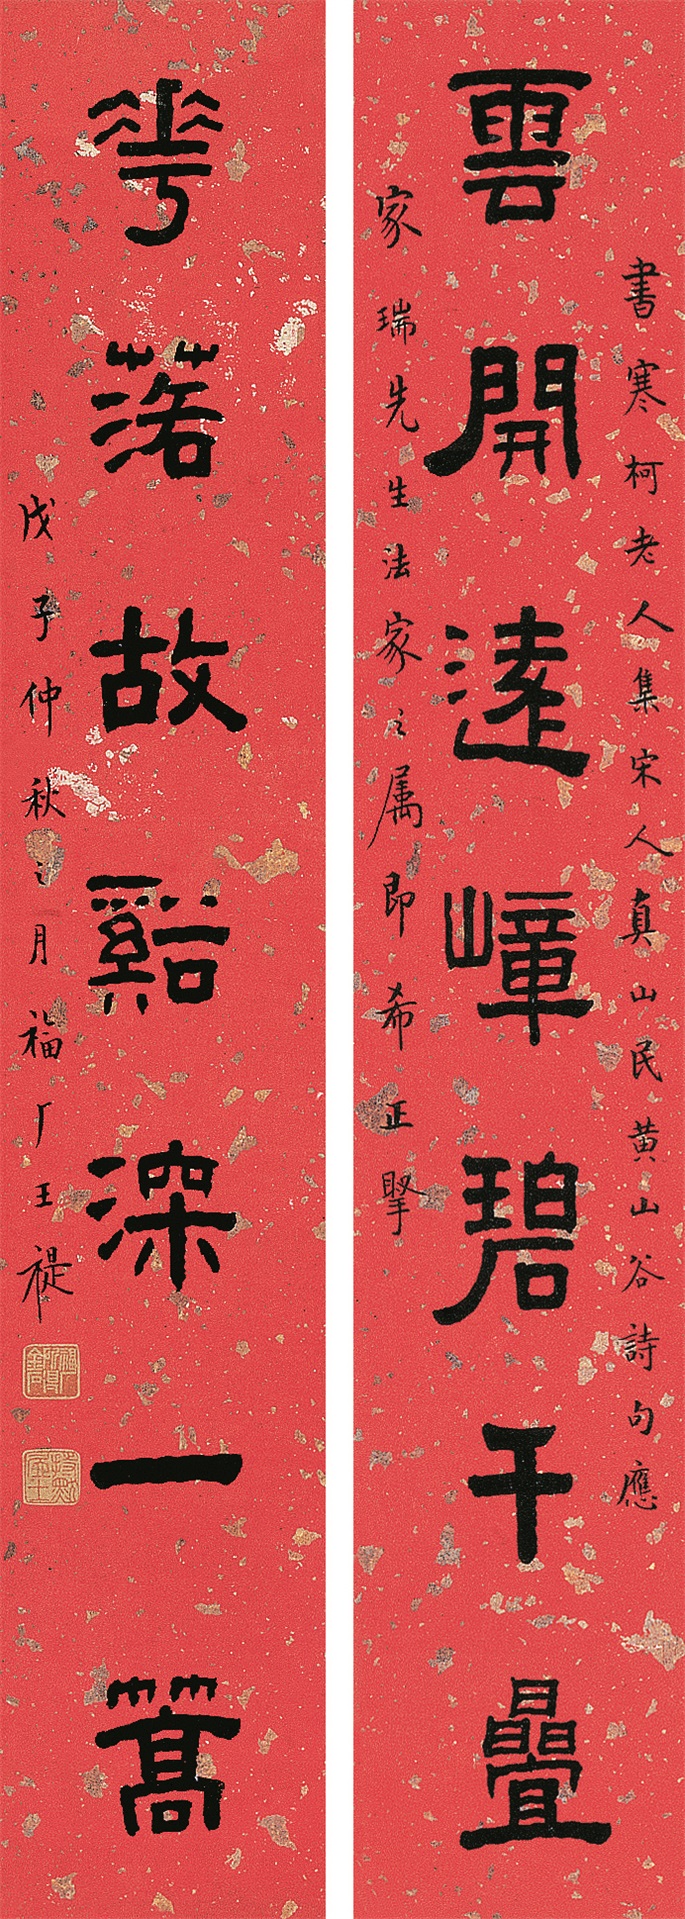 書寒柯老人集宋人真山民黄山谷詩句應
雲開遠嶂碧千疊
家瑞先生法家之属即希正掔
華落故谿深一篙
戊子仲秋之月福厂王禔